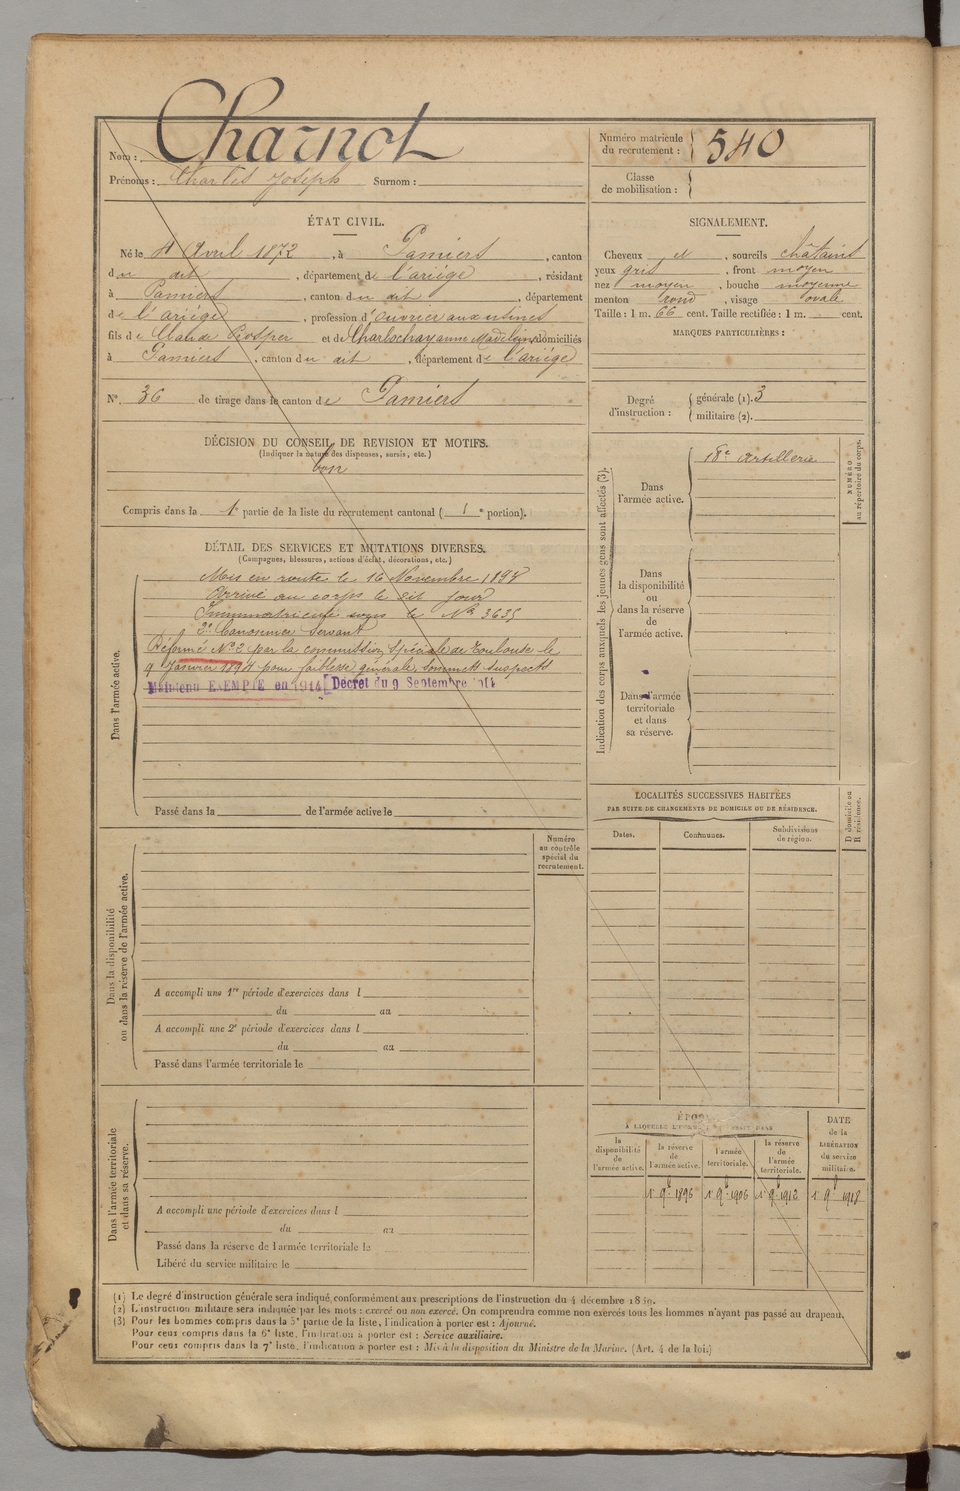 Nom : Charnot
Prénoms : Charles Joseph Surnom :
Numéro matricule du recrutement : 540
Classe de mobilisation :
ÉTAT CIVIL.
Né le 4 Avril 1872, à Pamiers, canton
du dit, département de l'ariége, résidant
à Pamiers, canton du dit, département
de l'ariége, profession d'ouvrier aux usines
fils de Claude Prosper et de anne Madeleine domiciliés
à Pamiers, canton du dit, département de l'ariége
N° 36 de tirage dans le canton de Pamiers
DÉCISION DU CONSEIL DE REVISION ET MOTIFS.
(Indiquer la nature des dispenses, sursis, etc.)
bon
Compris dans la 1e partie de la liste du recrutement cantonal ( 1e portion).
DÉTAIL DES SERVICES ET MUTATIONS DIVERSES.
(Campagnes, blessures, actions d'éclat, décorations, etc.)
Dans l'armée active.
Mis en route le 16 Novembre 1893
Arrivé au corps le dit jour
Immatriculé sous le No 3635
2e Canonnier Servant
Réformé No 2 par la commission Spéciale de Toulouse le
9 Janvier 1894 pour faiblesse générale, sommets suspects
Maintenu EXEMPTE en 1914 [Décret du 9 Septembre 1914
Passé dans la de l'armée active le
Numéro
au contrôle
spécial du
recrutement.
Dans la disponibilité
ou dans la réserve de l'armée active.
A accompli une 1re période d'exercices dans l
du au
A accompli une 2e période d'exercices dans l
du au
Passé dans l'armée territoriale le
Dans l'armée territoriale
et dans sa réserve.
A accompli une période d'exercices dans l
du au
Passé dans la réserve de l'armée territoriale le
Libéré du service militaire le
SIGNALEMENT.
Cheveux et, sourcils châtains
yeux gris, front moyen
nez moyen, bouche moyenne
menton rond, visage ovale
Taille : 1 m. 66 cent. Taille rectifiée : 1 m. cent.
MARQUES PARTICULIÈRES :
Degré d'instruction :
générale (1). 3
militaire (2).
Indication des corps auxquels les jeunes gens sont affectés (3).
Dans
l'armée active.
18e Artillerie
NUMÉRO
au répertoire du corps.
Dans
la disponibilité
ou
dans la réserve
de
l'armée active.
Dans l'armée
territoriale
et dans
sa réserve.
LOCALITÉS SUCCESSIVES HABITÉES
PAR SUITE DE CHANGEMENTS DE DOMICILE OU DE RÉSIDENCE.
Dates. Communes. Subdivisions de région.
D domicile ou
R résidence.
ÉPOQUE
la disponibilité de l'armée active.
la réserve de l'armée active.
l'armée territoriale.
la réserve de l'armée territoriale.
DATE
de la
LIBÉRATION
du service
militaire.
1er 9bre 1896 1er 9bre 1906 1er 9bre 1912 1er 9bre 1918
(1) Le degré d'instruction générale sera indiqué conformément aux prescriptions de l'instruction du 4 décembre 1889.
(2) L'instruction militaire sera indiquée par les mots : exercé ou non exercé. On comprendra comme non exercés tous les hommes n'ayant pas passé au drapeau.
(3) Pour les hommes compris dans la 5e partie de la liste, l'indication à porter est : Ajourné.
Pour ceux compris dans la 6e liste, l'indication à porter est : Service auxiliaire.
Pour ceux compris dans la 7e liste, l'indication à porter est : Mis à la disposition du Ministre de la Marine. (Art. 4 de la loi.)